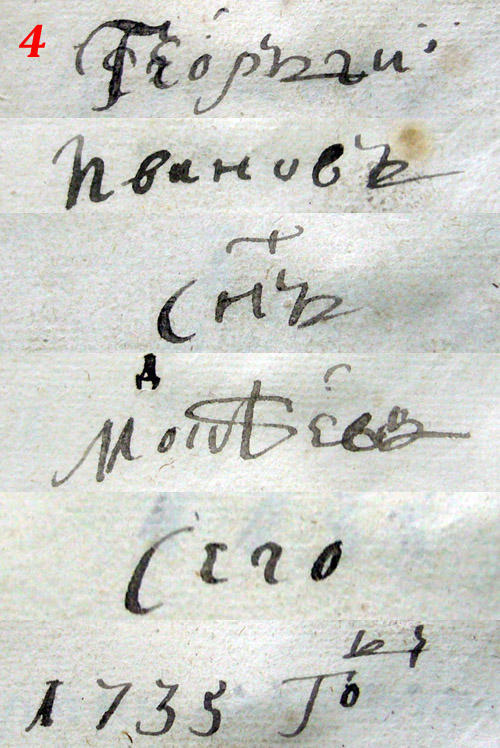 4
Геѡрьгий
Ивановъ
Снъ
Д
Моисѣевъ
Сего
1735 Го